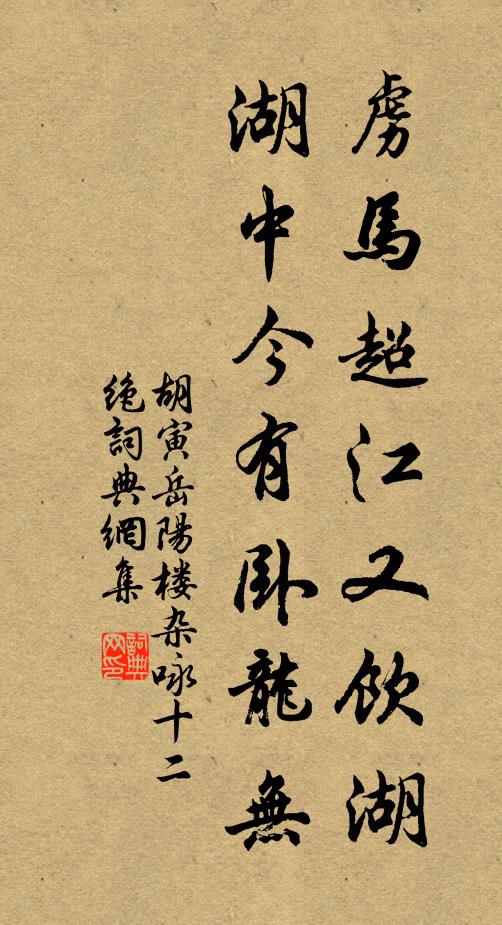 虜馬超江又飲湖
湖中今有臥龍無
胡寅岳陽楼杂咏十二
絶詞典網集
詞典网印